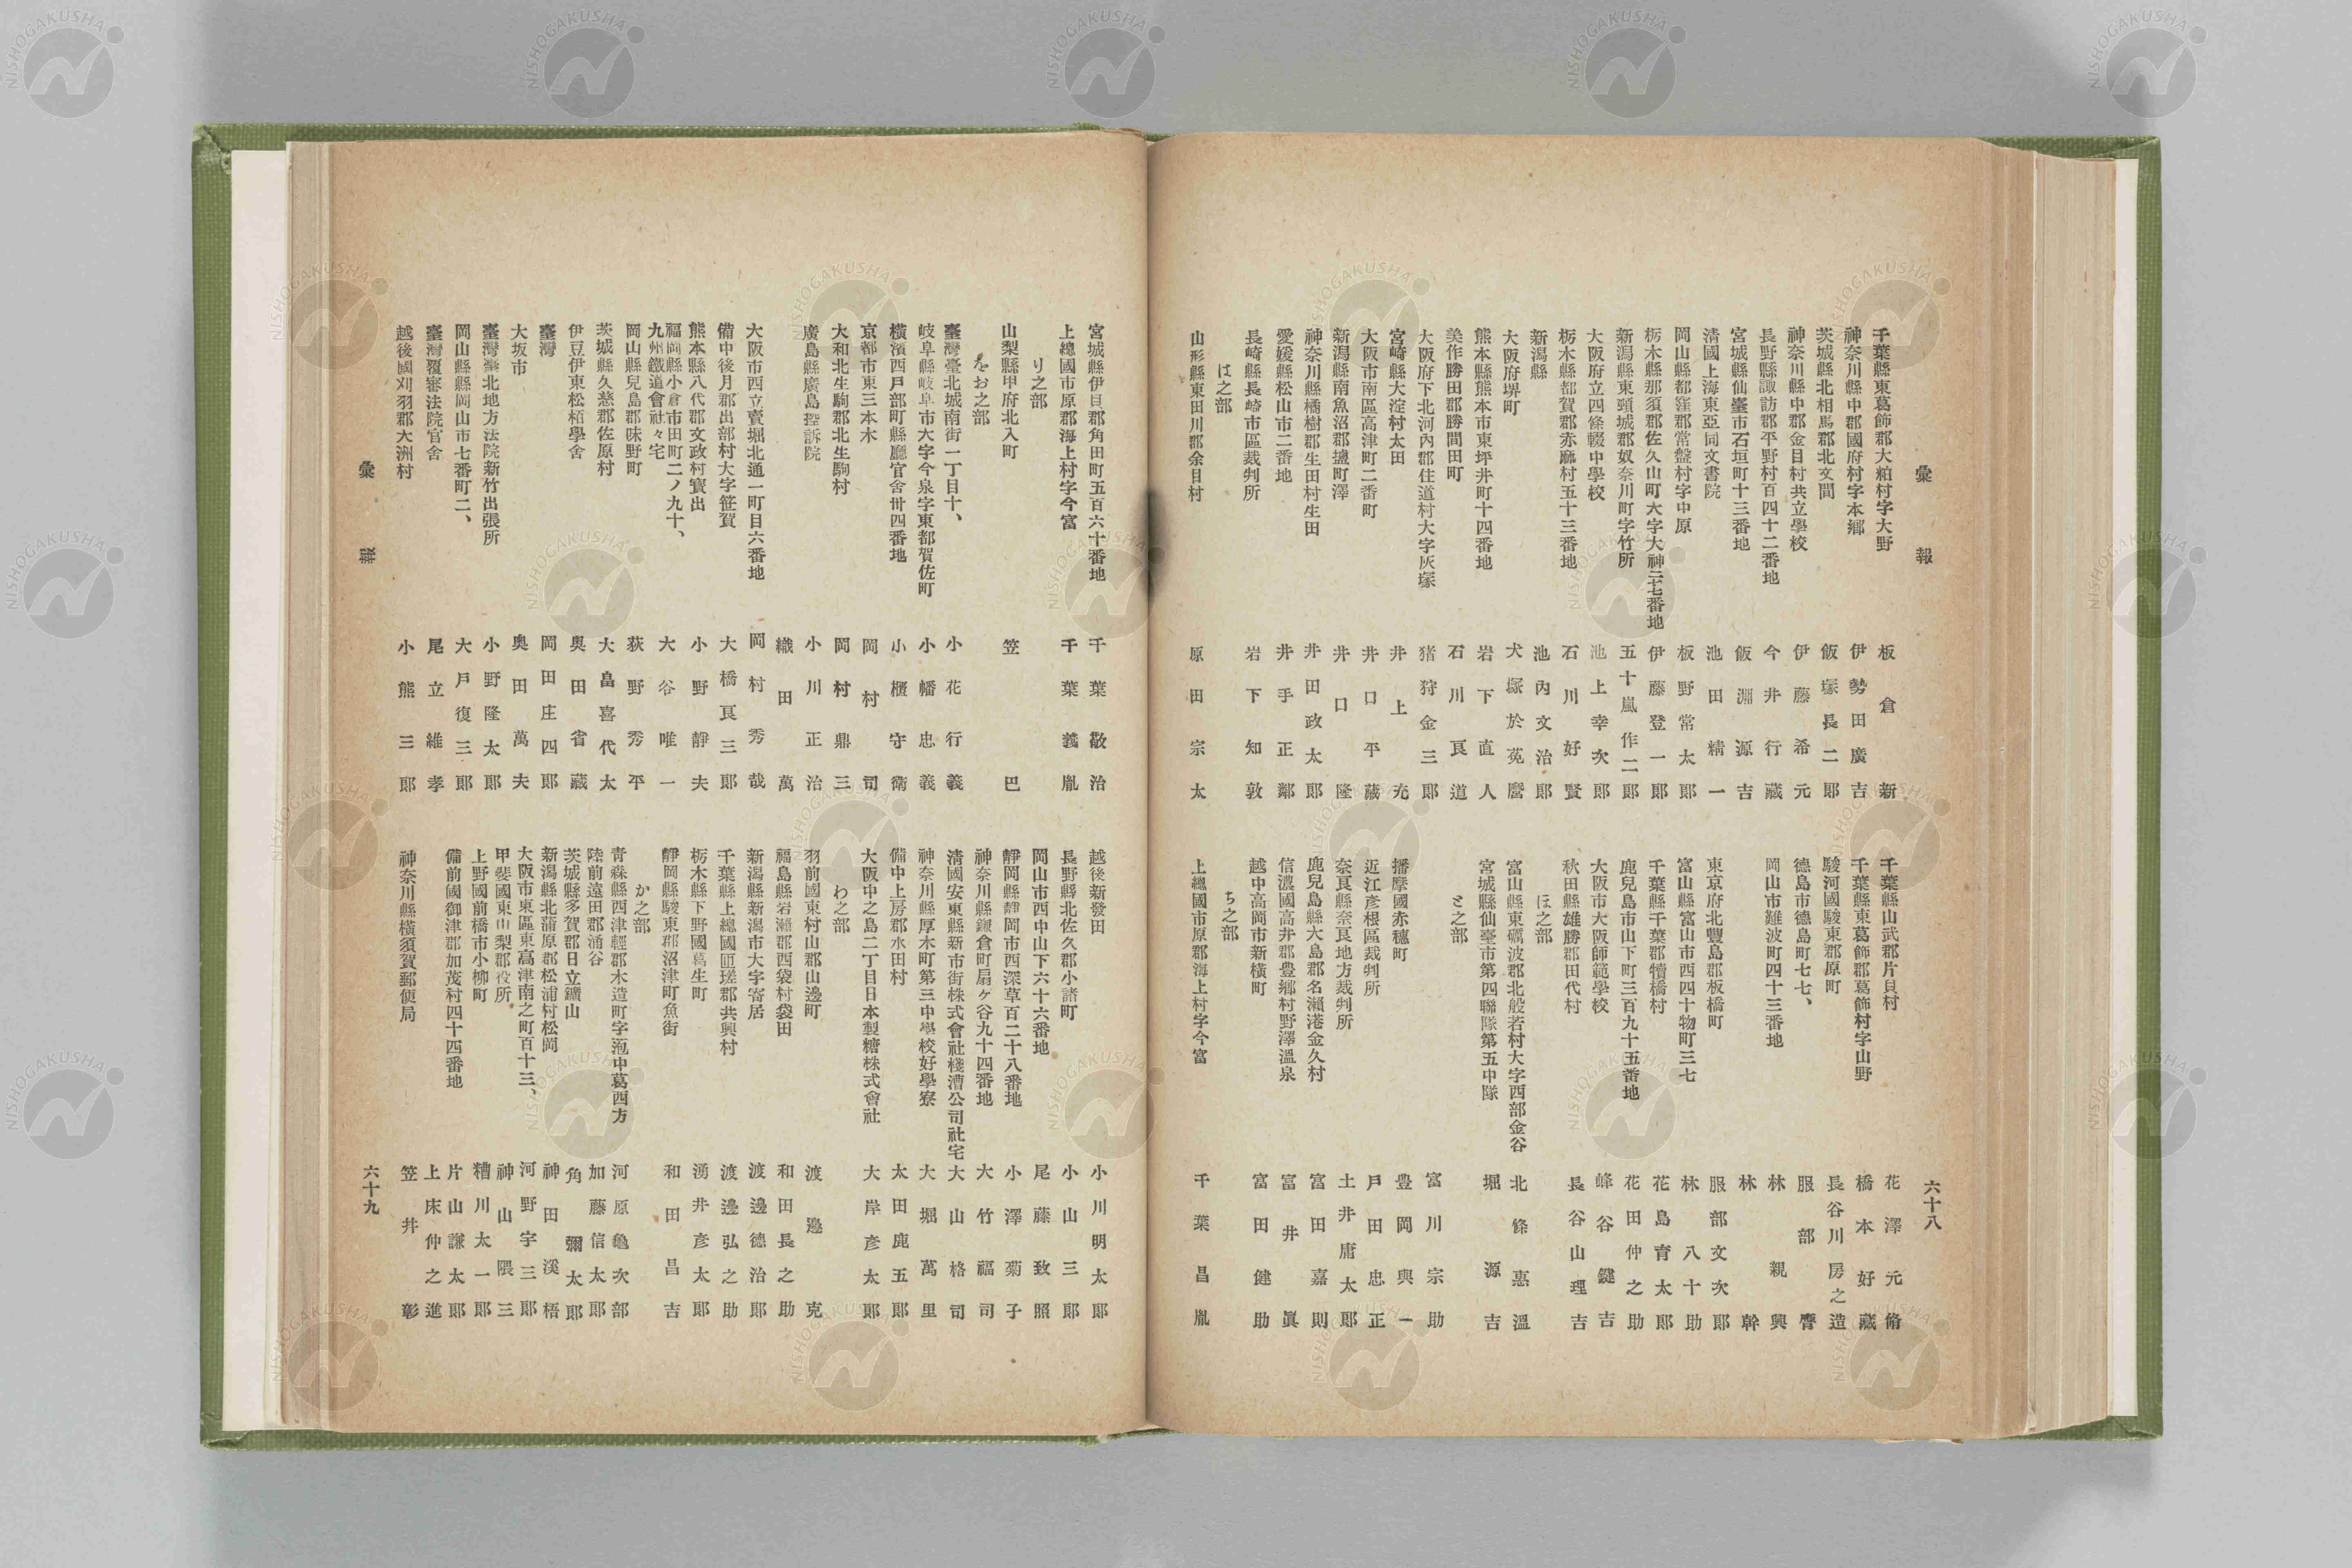 彙報
六十八
千葉縣東葛飾郡大粕村字大野 板倉新
神奈川縣中郡國府村字本鄉 伊勢田廣吉
茨城縣北相馬郡北文間 飯塚長二郎
神奈川縣中郡金目村共立學校 伊藤希元
長野縣諏訪郡平野村百四十二番地 今井行藏
宮城縣仙臺市石垣町十三番地 飯淵源吉
清國上海東亞同文書院 池田精一
岡山縣都窪郡常盤村字中原 板野常太郎
栃木縣那須郡佐久山町大字大神二七番地 伊藤登一郎
新潟縣東頸城郡奴奈川町字竹所 五十嵐作二郎
大阪府立四條畷中學校 池上幸次郎
栃木縣都賀郡赤麻村五十三番地 石川好賢
新潟縣 池內文治郎
大阪府堺町 犬塚於菟麿
熊本縣熊本市東坪井町十四番地 岩下直人
美作勝田郡勝間田町 石川良道
大阪府下北河內郡住道村大字灰塚 猪狩金三郎
宮崎縣大淀村太田 井上充
大阪市南區高津町二番町 井口平藏
新潟縣南魚沼郡鹽町澤 井口隆
神奈川縣橘樹郡生田村生田 井田政太郎
愛媛縣松山市二番地 井手正鄰
長崎縣長崎市區裁判所 岩下知敦
は之部
山形縣東田川郡余目村 原田宗太
千葉縣山武郡片貝村 花澤元脩
千葉縣東葛飾郡葛飾村字山野 橋本好藏
駿河國駿東郡原町 長谷川房之造
德島市德島町七七、 服部膺
岡山市難波町四十三番地 林親興
林幹
東京府北豐島郡板橋町 服部文次郎
富山縣富山市西四十物町三七 林八十助
千葉縣千葉郡犢橋村 花島育太郎
鹿兒島市山下町三百九十五番地 花田仲之助
大阪市大阪師範學校 峰谷鍵吉
秋田縣雄勝郡田代村 長谷山理吉
ほ之部
富山縣東礪波郡北般若村大字西部金谷 北條惠溫
宮城縣仙臺市第四聯隊第五中隊 堀源吉
と之部
富川宗助
播摩國赤穗町 豊岡與一
近江彦根區裁判所 戸田忠正
奈良縣奈良地方裁判所 土井庸太郎
鹿兒島縣大島郡名瀨港金久村 富田嘉則
信濃國高井郡豊鄉村野澤溫泉 富井眞
越中高岡市新橫町 富田健助
ち之部
上總國市原郡海上村字今富 千葉昌胤
宮城縣伊具郡角田町五百六十番地 千葉敬治
上總國市原郡海上村字今富 千葉義胤
り之部
山梨縣甲府北入町 笠巴
をお之部
臺灣臺北城南街一丁目十、 小花行義
岐阜縣岐阜市大字今泉字東都賀佐町 小幡忠義
橫濱西戸部町縣廳官舍卅四番地 小櫃守衛
京都市東三本木 岡村司
大和北生駒郡北生駒村 岡村鼎三
廣島縣廣島控訴院 小川正治
織田萬
大阪市西立賣堀北通一町目六番地 岡村秀哉
備中後月郡出部村大字笹賀 大橋良三郎
熊本縣八代郡文政村寳出 小野靜夫
福岡縣小倉市田町二ノ九十、
九州鐵道會社々宅 大谷唯一
岡山縣兒島郡味野町 荻野秀平
茨城縣久慈郡佐原村 大畠喜代太
伊豆伊東松栢學舍 奥田省藏
臺灣 岡田庄四郎
大坂市 奥田萬夫
臺灣臺北地方法院新竹出張所 小野隆太郎
岡山縣縣岡山市七番町二、 大戸復三郎
臺灣覆審法院官舍 尾立維孝
越後國刈羽郡大洲村 小熊三郎
越後新發田 小川明太郎
長野縣北佐久郡小諸町 小山三郎
岡山市西中山下六十六番地 尾藤致照
靜岡縣靜岡市西深草百二十八番地 小澤菊子
神奈川縣鎌倉町扇ケ谷九十四番地 大竹福司
清國安東縣新市街株式會社棧漕公司社宅 大山格司
神奈川縣厚木町第三中學校好學寮 大堀萬里
備中上房郡水田村 太田鹿五郎
大阪中之島二丁目日本製糖株式會社 大岸彦太郎
わ之部
羽前國東村山郡山邊町 渡邉克
福島縣岩瀨郡西袋村袋田 和田長之助
新潟縣新潟市大字寄居 渡邊德治郎
千葉縣上總國匝瑳郡共興村 渡邊弘之助
栃木縣下野國葛生町 湧井彦太郎
靜岡縣駿東郡沼津町魚街 和田昌吉
か之部
青森縣西津輕郡木造町字菰中葛西方 河原亀次部
陸前遠田郡涌谷 加藤信太郎
茨城縣多賀郡日立鑛山 角彌太郎
新潟縣北蒲原郡松浦村松岡 神田溪梧
大阪市東區東高津南之町百十三、 河野宇三郎
甲斐國東山梨郡役所。 神山隈三
上野國前橋市小柳町 糟川太一郎
備前國御津郡加茂村四十四番地 片山謙太郎
上床仲之進
神奈川縣橫須賀郵便局 笠井彰
彙報
六十九
NISHOGAKUSHA